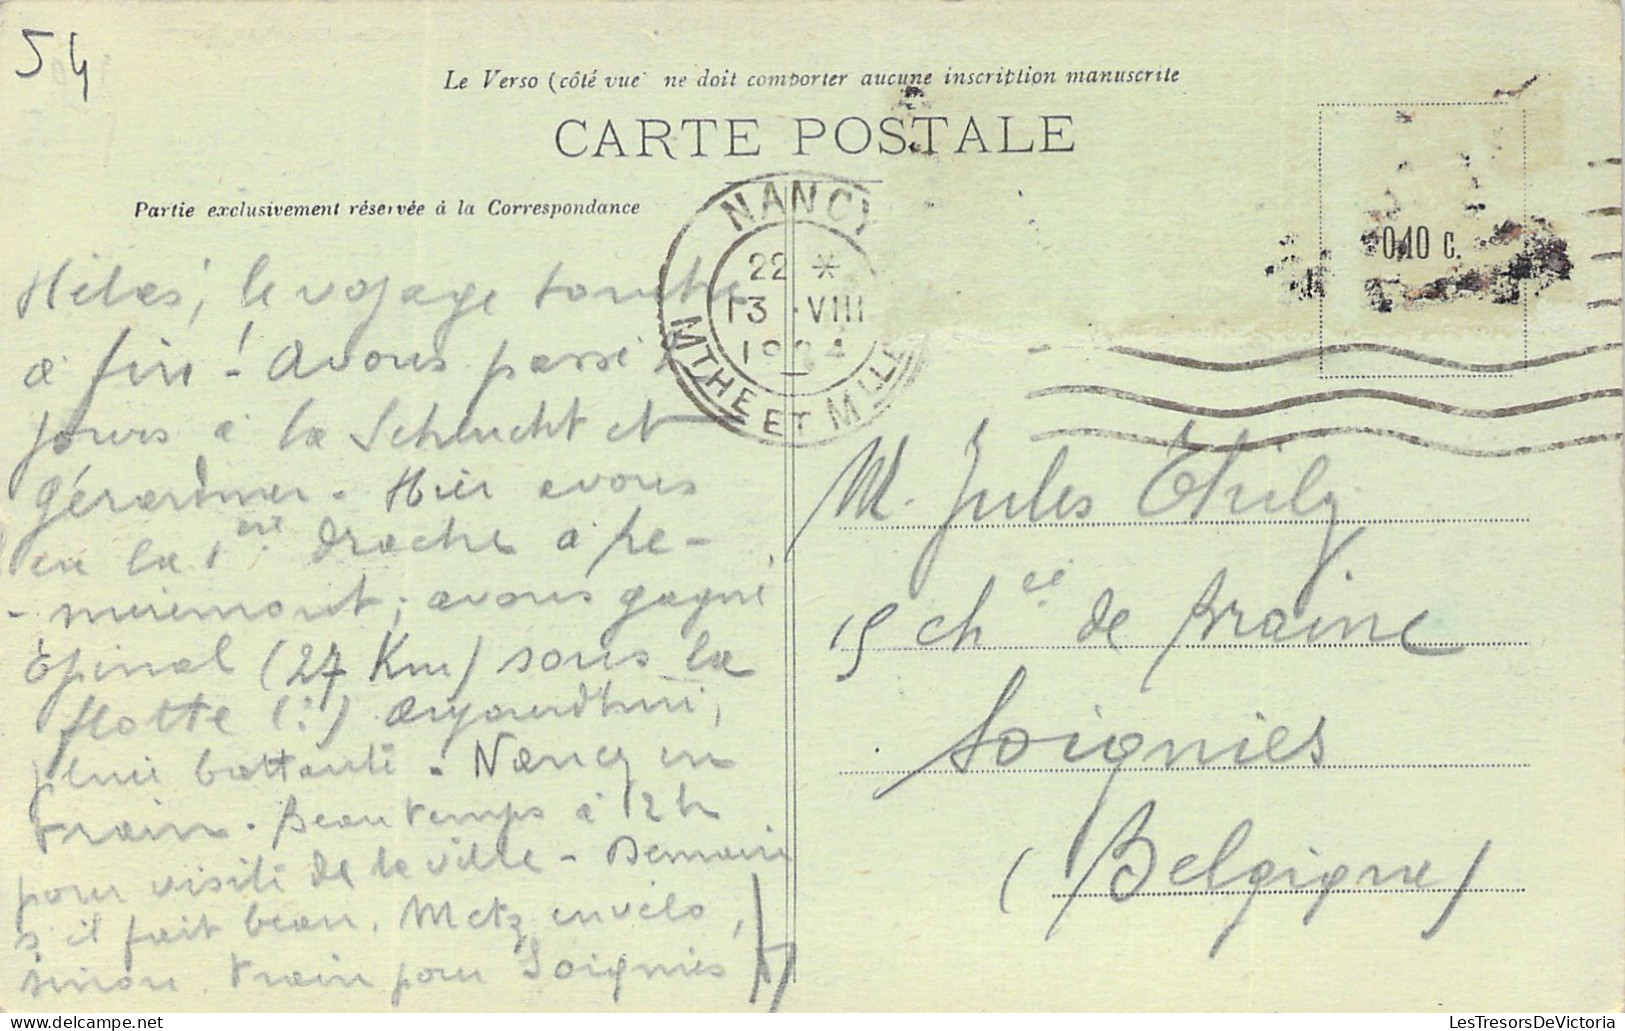 54
Le Verso (côté vue) ne doit comporter aucune inscription manuscrite
CARTE POSTALE
Partie exclusivement réservée à la Correspondance
NANCY
22 *
13 VIII
1924
MTHE ET MLLE
0.10 C.
Hélas, le voyage touche
à fin! Avons passé
jours à la Schlucht et
Gérardmer. Hier avons
eu la 1ère drache à Re-
-miremont; avons gagné
Epinal (27 Km) sous la
flotte (!) Aujourd'hui,
pluie battante. Nancy en
train. Beau temps à 12 h
pour visite de la ville - Demain
s'il fait beau, Metz en vélo,
sinon train pour Soignies
M. Jules Thily
15 Chée de Braine
Soignies
(Belgique)
LesTresorsDeVictoria